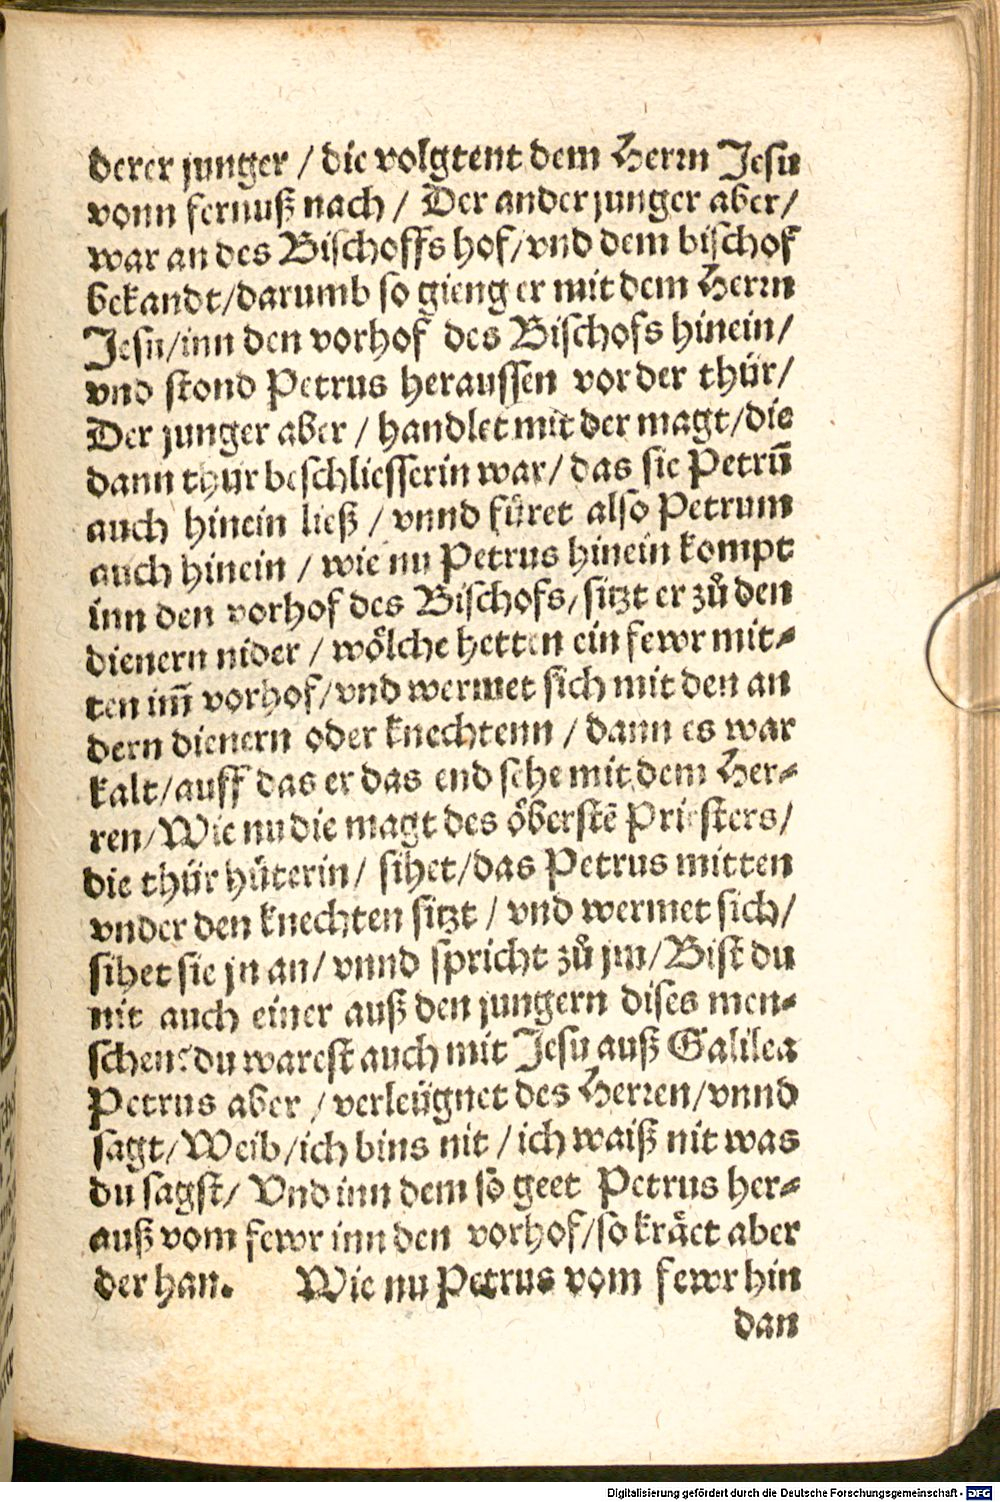 derer junger / die volgtent dem Herrn Jesu
vonn fernuß nach / Der ander junger aber/
war an des Bischoffs hof/vnd dem bischof
bekandt/darumb so gieng er mit dem Herrn
Jesu/inn den vorhof des Bischofs hinein/
vnd stond Petrus heraussen vor der thür/
Der junger aber / handlet mit der magt/die
dann thur beschliesserin war/ das sie Petrū
auch hinein ließ / vnnd füret also Petrum
auch hinein / wie nu Petrus hinein kompt
inn den vorhof des Bischofs/sitzt er zů den
dienern nider / wölche hetten ein fewr mit-
ten im̄ vorhof/vnd wermet sich mit den an
dern dienern oder knechtenn / dann es war
kalt/auff das er das end sehe mit dem Her-
ren/Wie nu die magt des öberstē Priesters/
die thür hüterin/ sihet/das Petrus mitten
vnder den knechten sitzt / vnd wermet sich/
sihet sie jn an/ vnnd spricht zů jm/Bist du
nit auch einer auß den jungern dises men-
schen?du warest auch mit Jesu auß Galilea
Petrus aber / verleügnet des Herren/vnnd
sagt/Weib/ich bins nit / ich waiß nit was
du sagst/ Vnd inn dem so geet Petrus her-
auß vom fewr inn den vorhof/so kräet aber
der han. Wie nu Petrus vom fewr hin
dan
Digitalisierung gefördert durch die Deutsche Forschungsgemeinschaft - DFG